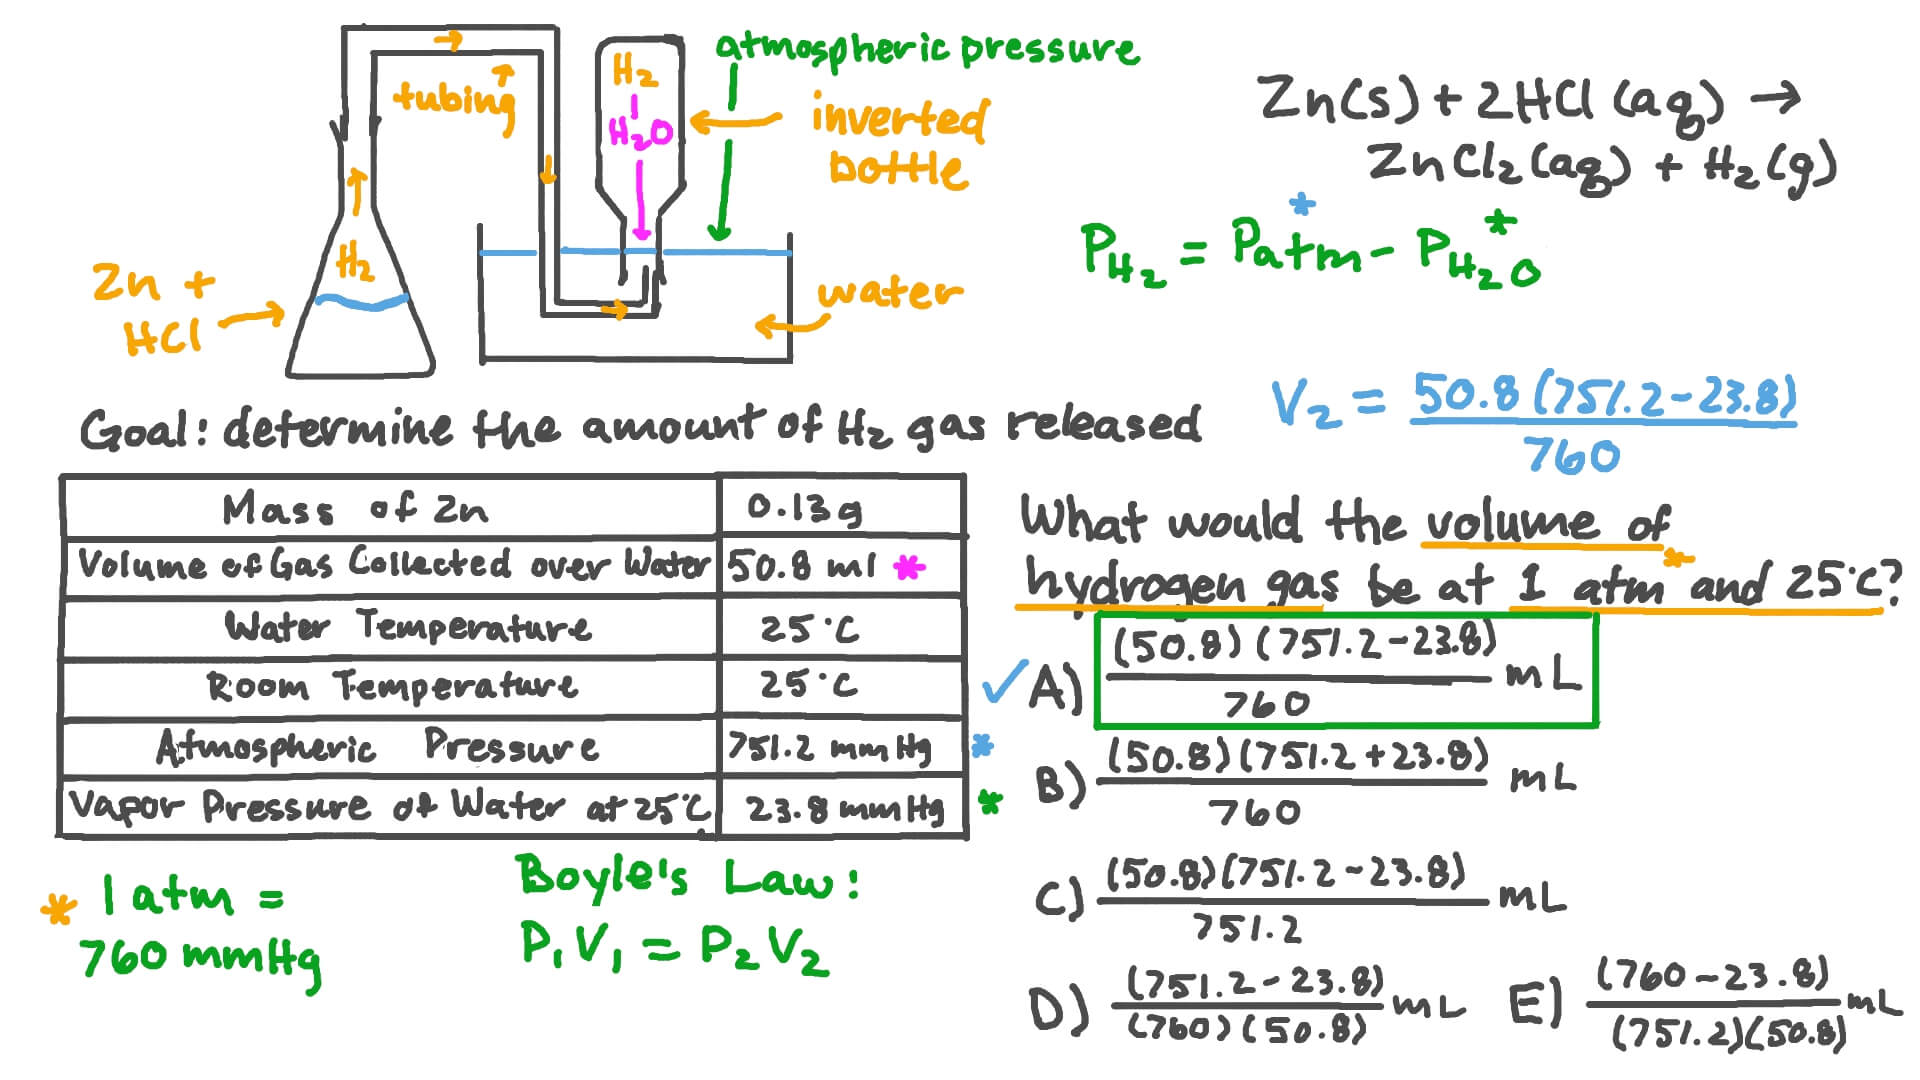 atmospheric pressure
tubing
H₂
H₂O
inverted
bottle
H₂
Zn +
HCl
water
Zn(s) + 2HCl (aq) →
ZnCl₂ (aq) + H₂ (g)
*
P H₂ = Patm - P H₂O *
V₂ = 50.8 (751.2-23.8)
760
Goal: determine the amount of H₂ gas released
Mass of Zn 0.13g
Volume of Gas Collected over Water 50.8 ml *
Water Temperature 25°C
Room Temperature 25°C
Atmospheric Pressure 751.2 mm Hg *
Vapor Pressure of Water at 25°C 23.8 mm Hg *
* 1 atm =
760 mmHg
Boyle's Law:
P₁V₁ = P₂V₂
What would the volume of
hydrogen gas be at 1 atm * and 25°C?
✓ A) (50.8) (751.2-23.8) mL
760
B) (50.8) (751.2+23.8) mL
760
C) (50.8) (751.2-23.8) mL
751.2
D) (751.2-23.8) mL
(760) (50.8)
E) (760-23.8) mL
(751.2)(50.8)